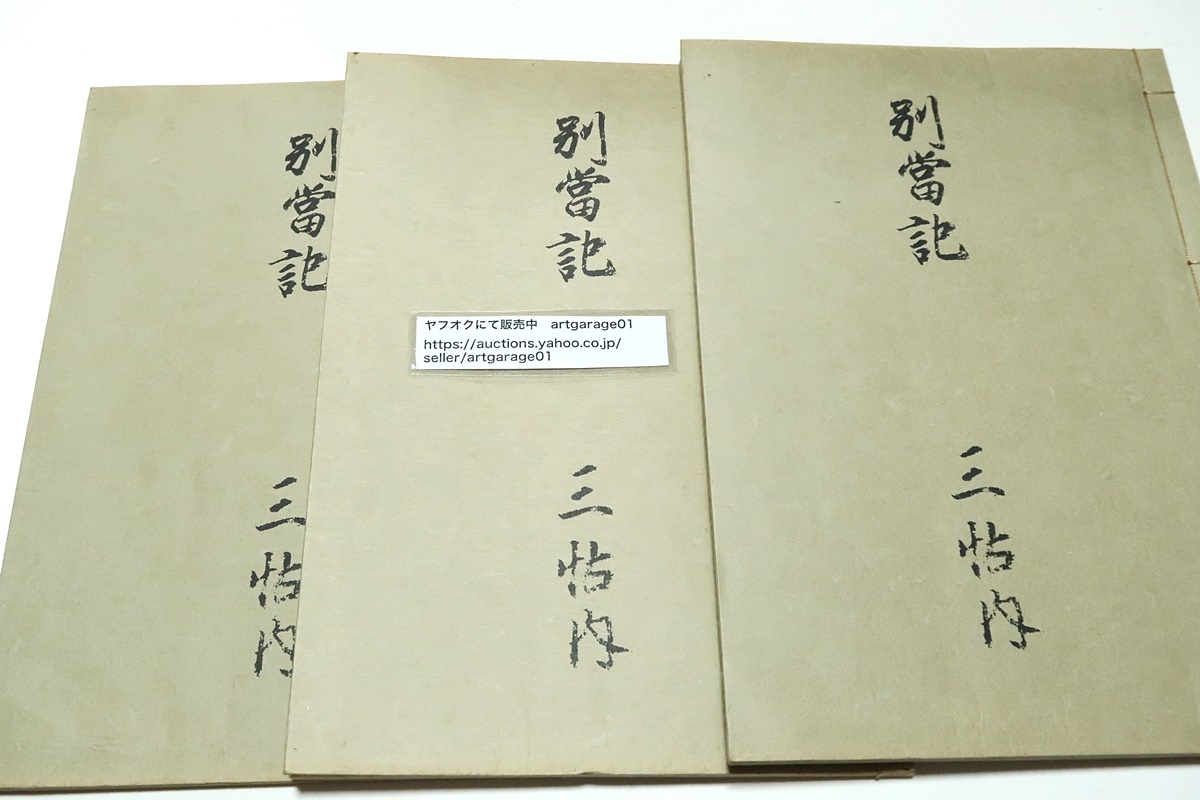 別當記
三帖内
別當記
三帖内
別當記
三帖内
ヤフオクにて販売中 artgarage01
https://auctions.yahoo.co.jp/
seller/artgarage01